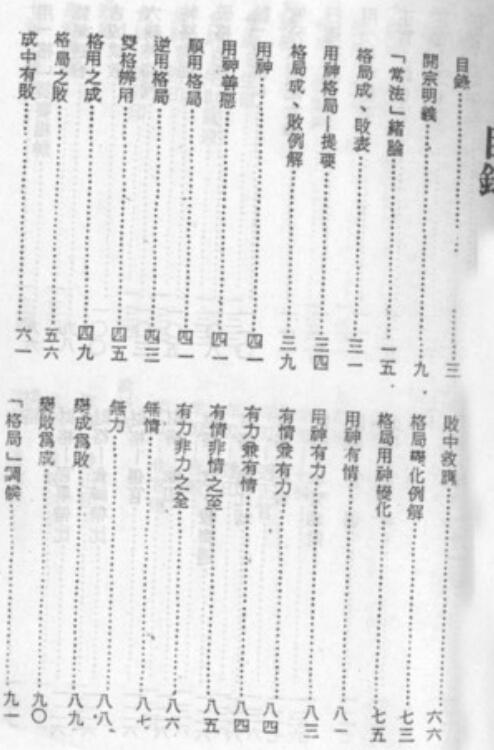 目錄
目錄…………三
開宗明義…………九
「常法」緒論…………一五
格局成、敗表…………三一
用神格局—提要…………三四
格局成、敗例解…………三九
用神…………四一
用神善惡…………四一
順用格局…………四一
逆用格局…………四三
雙格辨用…………四五
格用之成…………四九
格局之敗…………五六
成中有敗…………六一
敗中救應…………六六
格局變化例解…………七三
格局用神變化…………七五
用神有情…………八一
用神有力…………八三
有情兼有力…………八四
有力兼有情…………八四
有情非情之至…………八五
有力非力之全…………八六
無情…………八七
無力…………八八
變成爲敗…………八九
變敗爲成…………九〇
「格局」調候…………九一